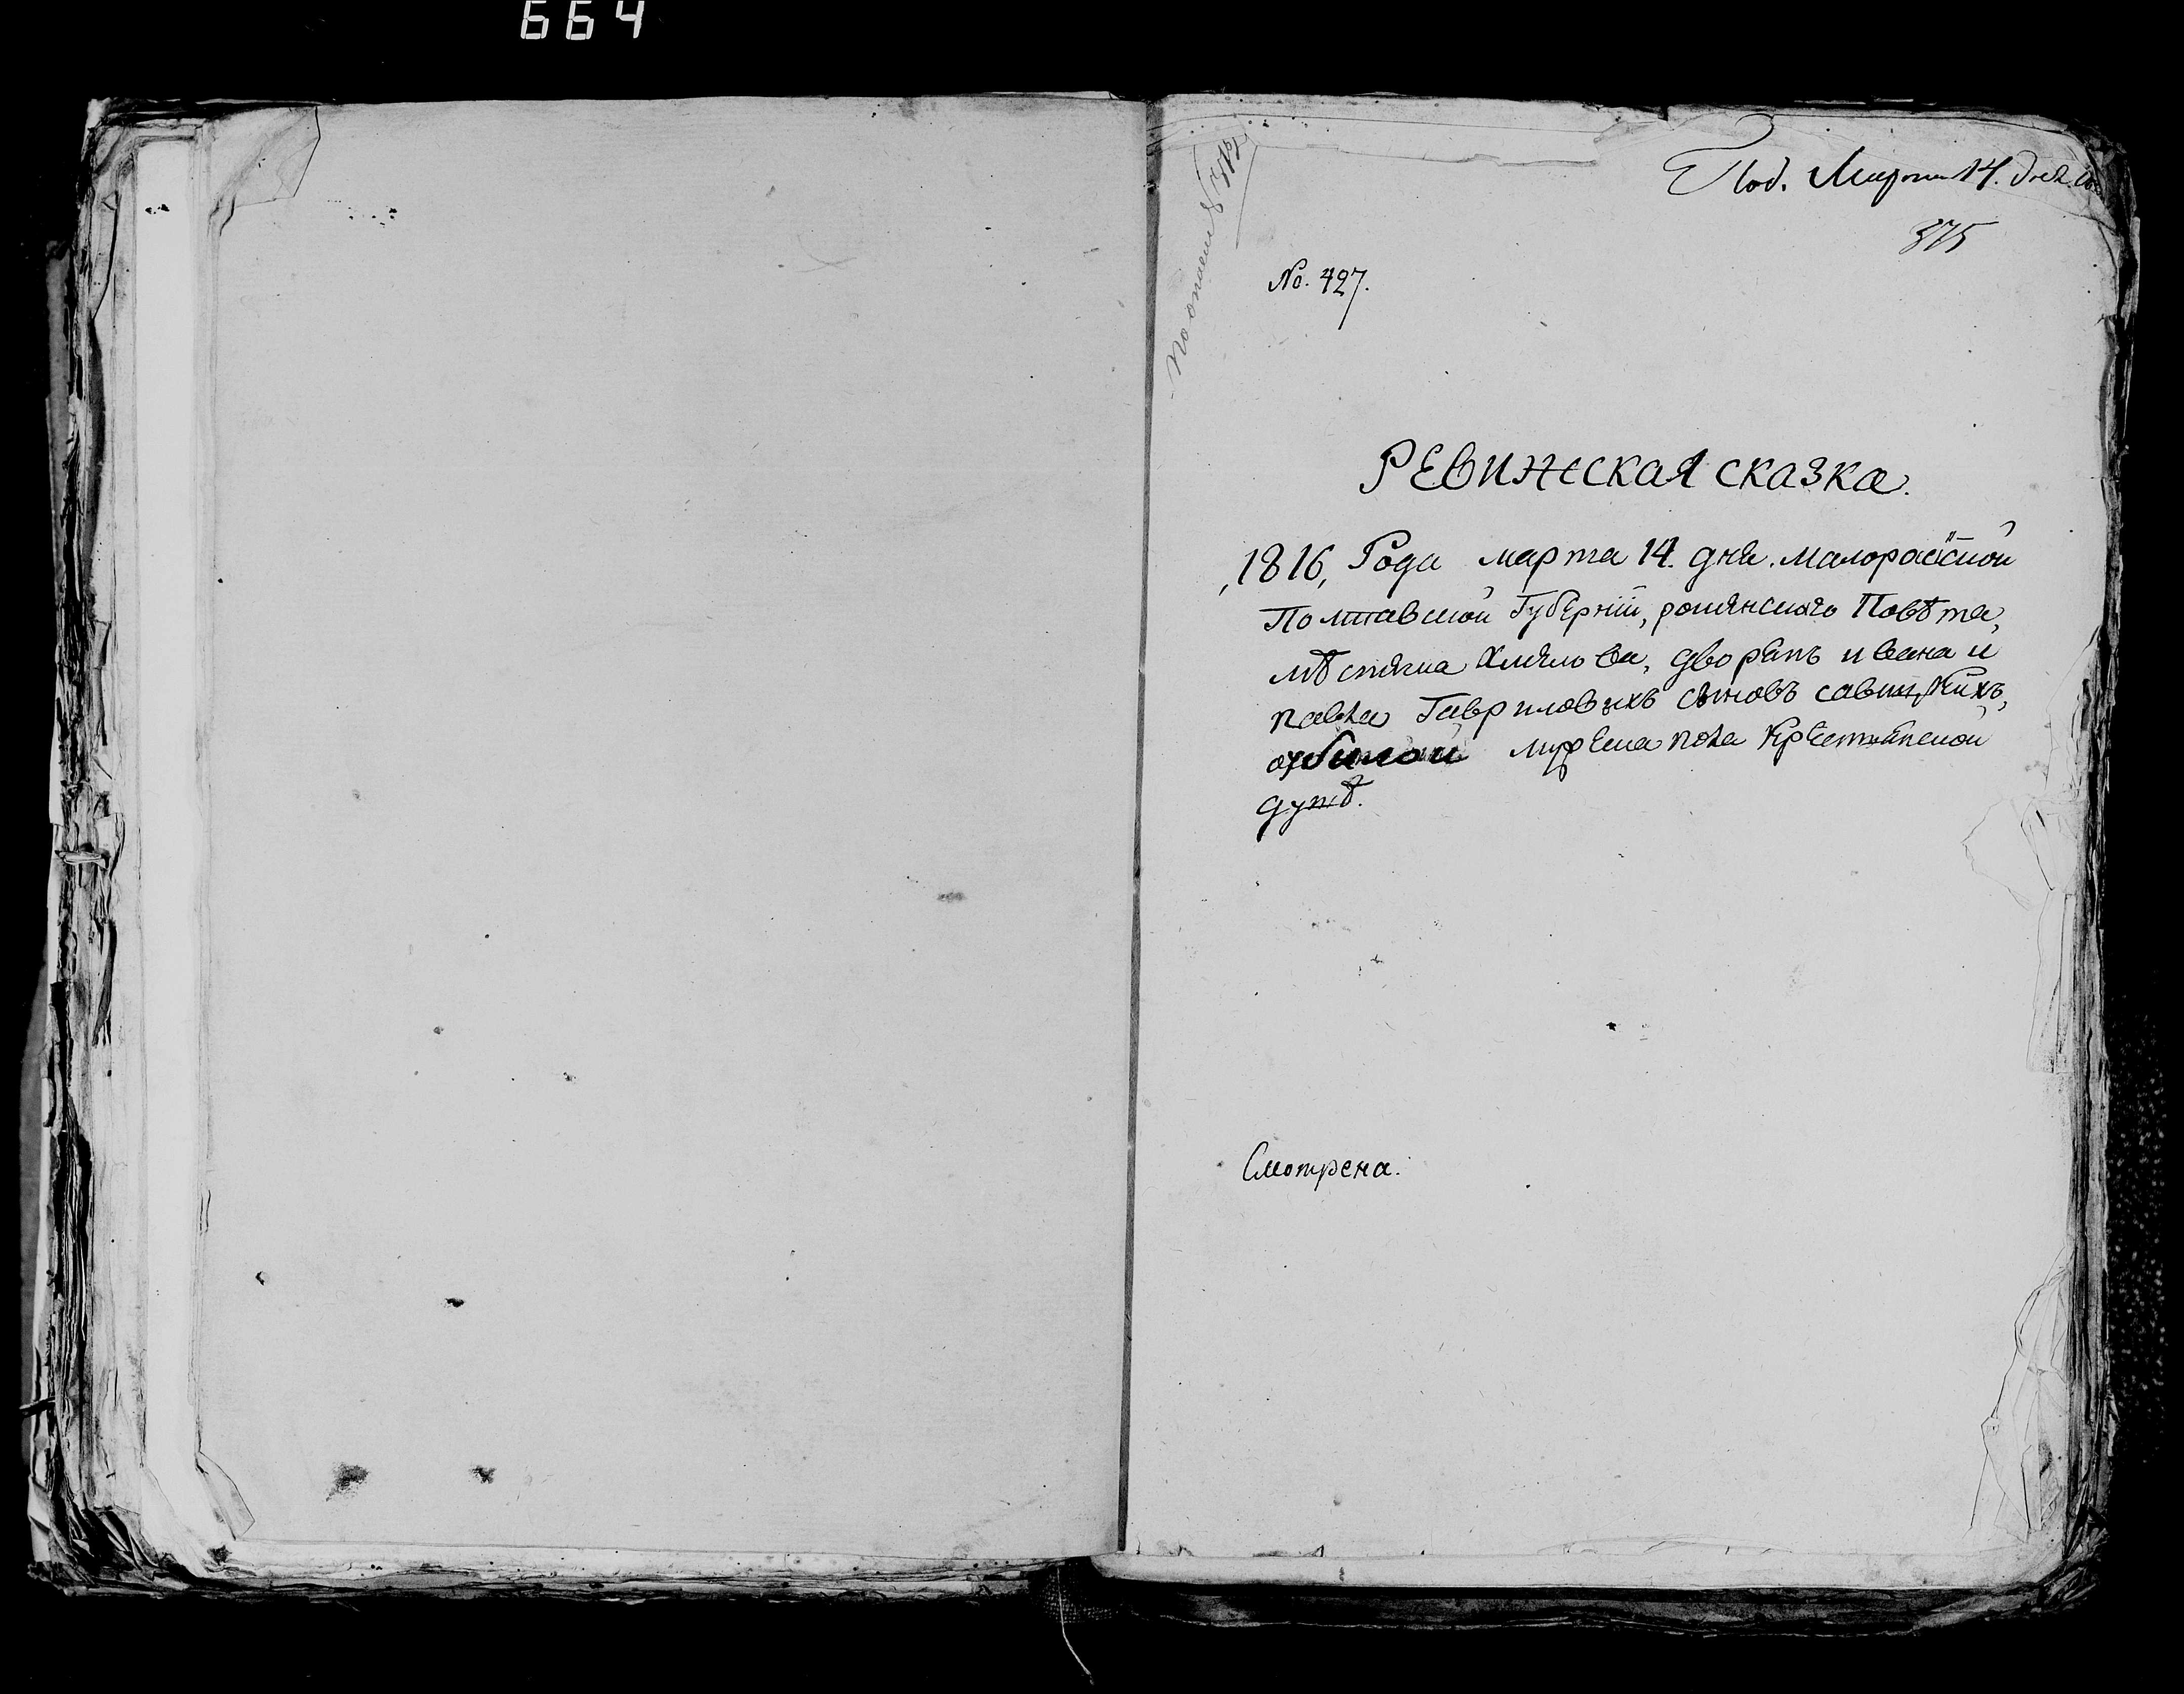 664
Под. Марта 14. дня 1816
375
No. 427.
По описи N 312
РЕВИЖСКАЯ СКАЗКА.
,1816, Года марта 14. дня. малороссійской
Полтавской Губерніи, роменского Повѣта,
мѣстечка Хмѣлова, дворянъ ивана и
павла Гавриловыхъ сыновъ савицкихъ,
мужеска пола крестьянской
душѣ.
Смотрена.